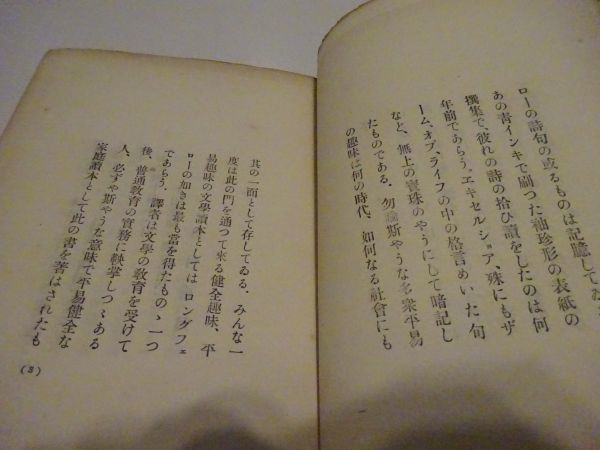 ローの詩句の或るものは記臆してな
あの青インキで刷つた袖珍形の表紙の
撰集で、彼れの詩の拾ひ讀をしたのは何
年前であらう。エキセルシヨア、殊にもザ
ーム、オブ、ライフの中の格言めいた句
など、無上の寳珠のやうにして暗記し
たものである。勿論斯やうな多衆平易
の趣味は何の時代、如何なる社會にも
其の一面として存してゐる。みんな一
度は此の門を通つて來る健全趣味、平
易趣味の文學讀本としては ロングフェ
ローの如きは最も當を得たものゝ一つ
であらう。譯者は文學の敎育を受けて
後、普通敎育の實務に鞅掌しつゝある
人、必ずや斯やうな意味で平易健全な
家庭讀本として此の書を著はされたも
(3)